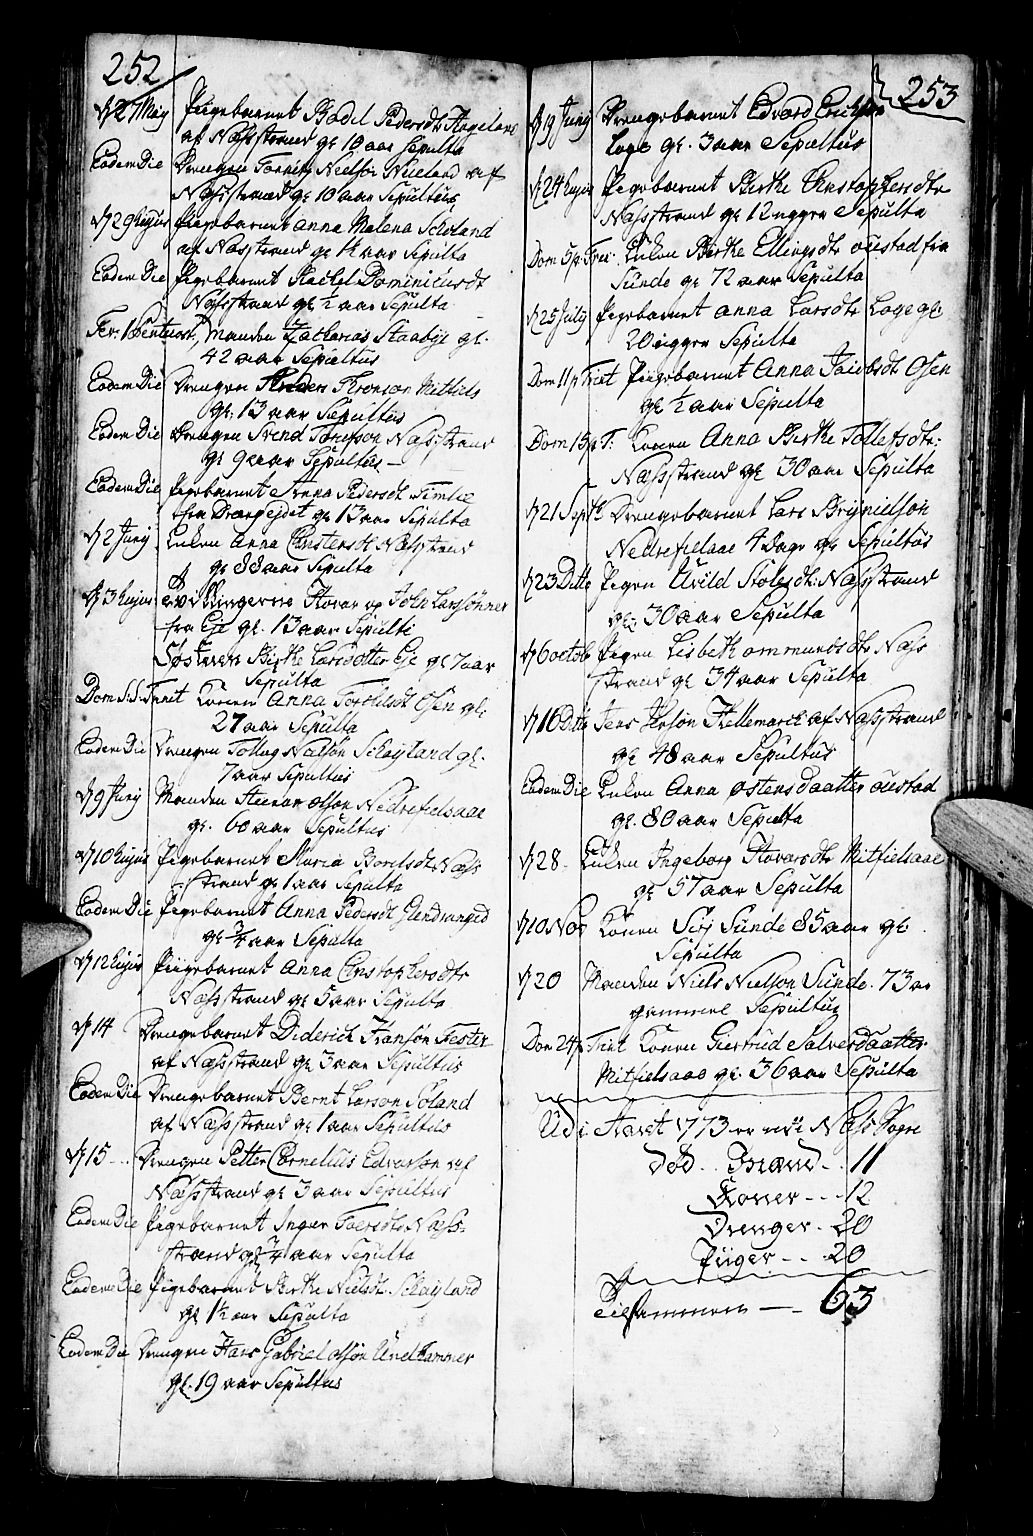 252
d 27 May Pigebarnet Bodil Pedersdtr
af Næsstrand gl 10 aar Sepulta
Eodem Die Drengen Tønnes Nielsøn Nueland af
Næsstrand gl 10 aar Sepultus
d 29 hujus Pigebarnet Anna Malena Scheland
af Næsstrand gl 1/4 aar Sepulta
Eodem Die Pigebarnet Rachel Dominicusdt
Næsstrand gl 1/2 aar Sepulta
Fer: 1 Pentecost, Manden Zacharias Staabye gl.
42 aar Sepultus
Eodem Die Drengen Thronson
gl. 13 aar Sepultus
Eodem Die Drengen Svend Næsstrand
gl 9 aar Sepultus
Eodem Die Pigebarnet Anna Pedersdt
fra Drangejdet gl 13 aar Sepulta
d 2 Junj Enken Anna Næsstrand
gl 88 aar Sepulta
d 3 hujus Tvillingerne Hovar og John Larssønner
fra Eje gl. 13 aar Sepulti
Søsteren Birthe Larsdatter Eje gl 7 aar
Sepulta
Dom: S:S: Trinit Konen Anna Osen gl:
27 aar Sepulta
Eodem Die Drengen Tollag Schøyland gl.
7 aar Sepultus
d 9 Junj Manden Steenar Olsøn Nedrefielsaae
gl. 60 aar Sepultus
d 10 hujus Pigebarnet Maria Næs
strand gl 1 aar Sepulta
Eodem Die Pigebarnet Anna Pedersdt Glendranged
gl 3/4 aar Sepulta
d 12 hujus Piigebarnet Anna Christophersdtr
Næsstrand gl 5 aar Sepulta
d 14 Drengebarnet Diderich Fransøn Fester
af Næsstrand gl 3 aar Sepultus
Eodem Die Drengebarnet Bernt Larson Søland
af Næsstrand gl 1 aar Sepultus
d 15 Drengen Petter Cornelius Edvarsøn af
Næsstrand gl 3 aar Sepultus
Eodem Die Pigebarnet Inger Næs-
strand gl 3/4 aar Sepulta
Eodem Die Pigebarnet Berthe Nielsdt Schøyland
gl 1 1/2 aar Sepulta
Eodem Die Drengen Hans Gabriel Olsøn Undhammer
gl. 19 aar Sepultus
253
d 19 Junj Drengebarnet Edvard Erichsøn
Loge gl. 3 aar Sepultus
d 24 hujus Pigebarnet Birthe Christophersdtr
Næsstrand gl 12 uger Sepulta
Dom 5 p: Trin: Enken Birthe Ellingsdtr oustad fra
Sunde gl 72 aar Sepulta
d 25 July Pigebarnet anna Larsdtr Loge gl:
20 uger Sepulta
Dom 11 p Trinit Piigebarnet Anna Jacobsdt Osen
gl 1/2 aar Sepulta
Dom 15 p T: Konen Anna Birthe Tollefsdtr:
Næsstrand gl 30 aar Sepulta
d 21 Septb Drengebarnet Lars Brynielsøn
Nedrefielsaae 4 Dage gl Sepultus
d 23 Ditto Pigen Uvild Stolesdt: Næsstrand
gl: 30 aar Sepulta
d 6 octob Pigen Lisbeth ommundsdtr Næs
strand gl 34 aar Sepulta
d 16 Ditto Jens Ibsøn Hellemarch af Næsstrand
gl 48 aar Sepultus
Eodem Die Enken Anna østensdaatter oustad
gl. 80 aar Sepulta
d 28 Enken Ingeborg Hovarsdtr Mitfielsaae
gl 57 aar Sepulta
d 10 Nov Konen Sirj Sunde 85 aar gl:
Sepulta
d 20 Manden Niels Nielsøn Sunde. 73 aar
gammel Sepultus
Dom 24 p Trinit Konen Giertrud Salvesdaatter
Mitfielsaae gl. 36 aar Sepulta
Udi Aaret 1773 er udi Næs Sogn
Død.. Mænd.. 11
Koner - - - 12
Drenger - 20
Piiger - - - 20
Tilsammen — 63